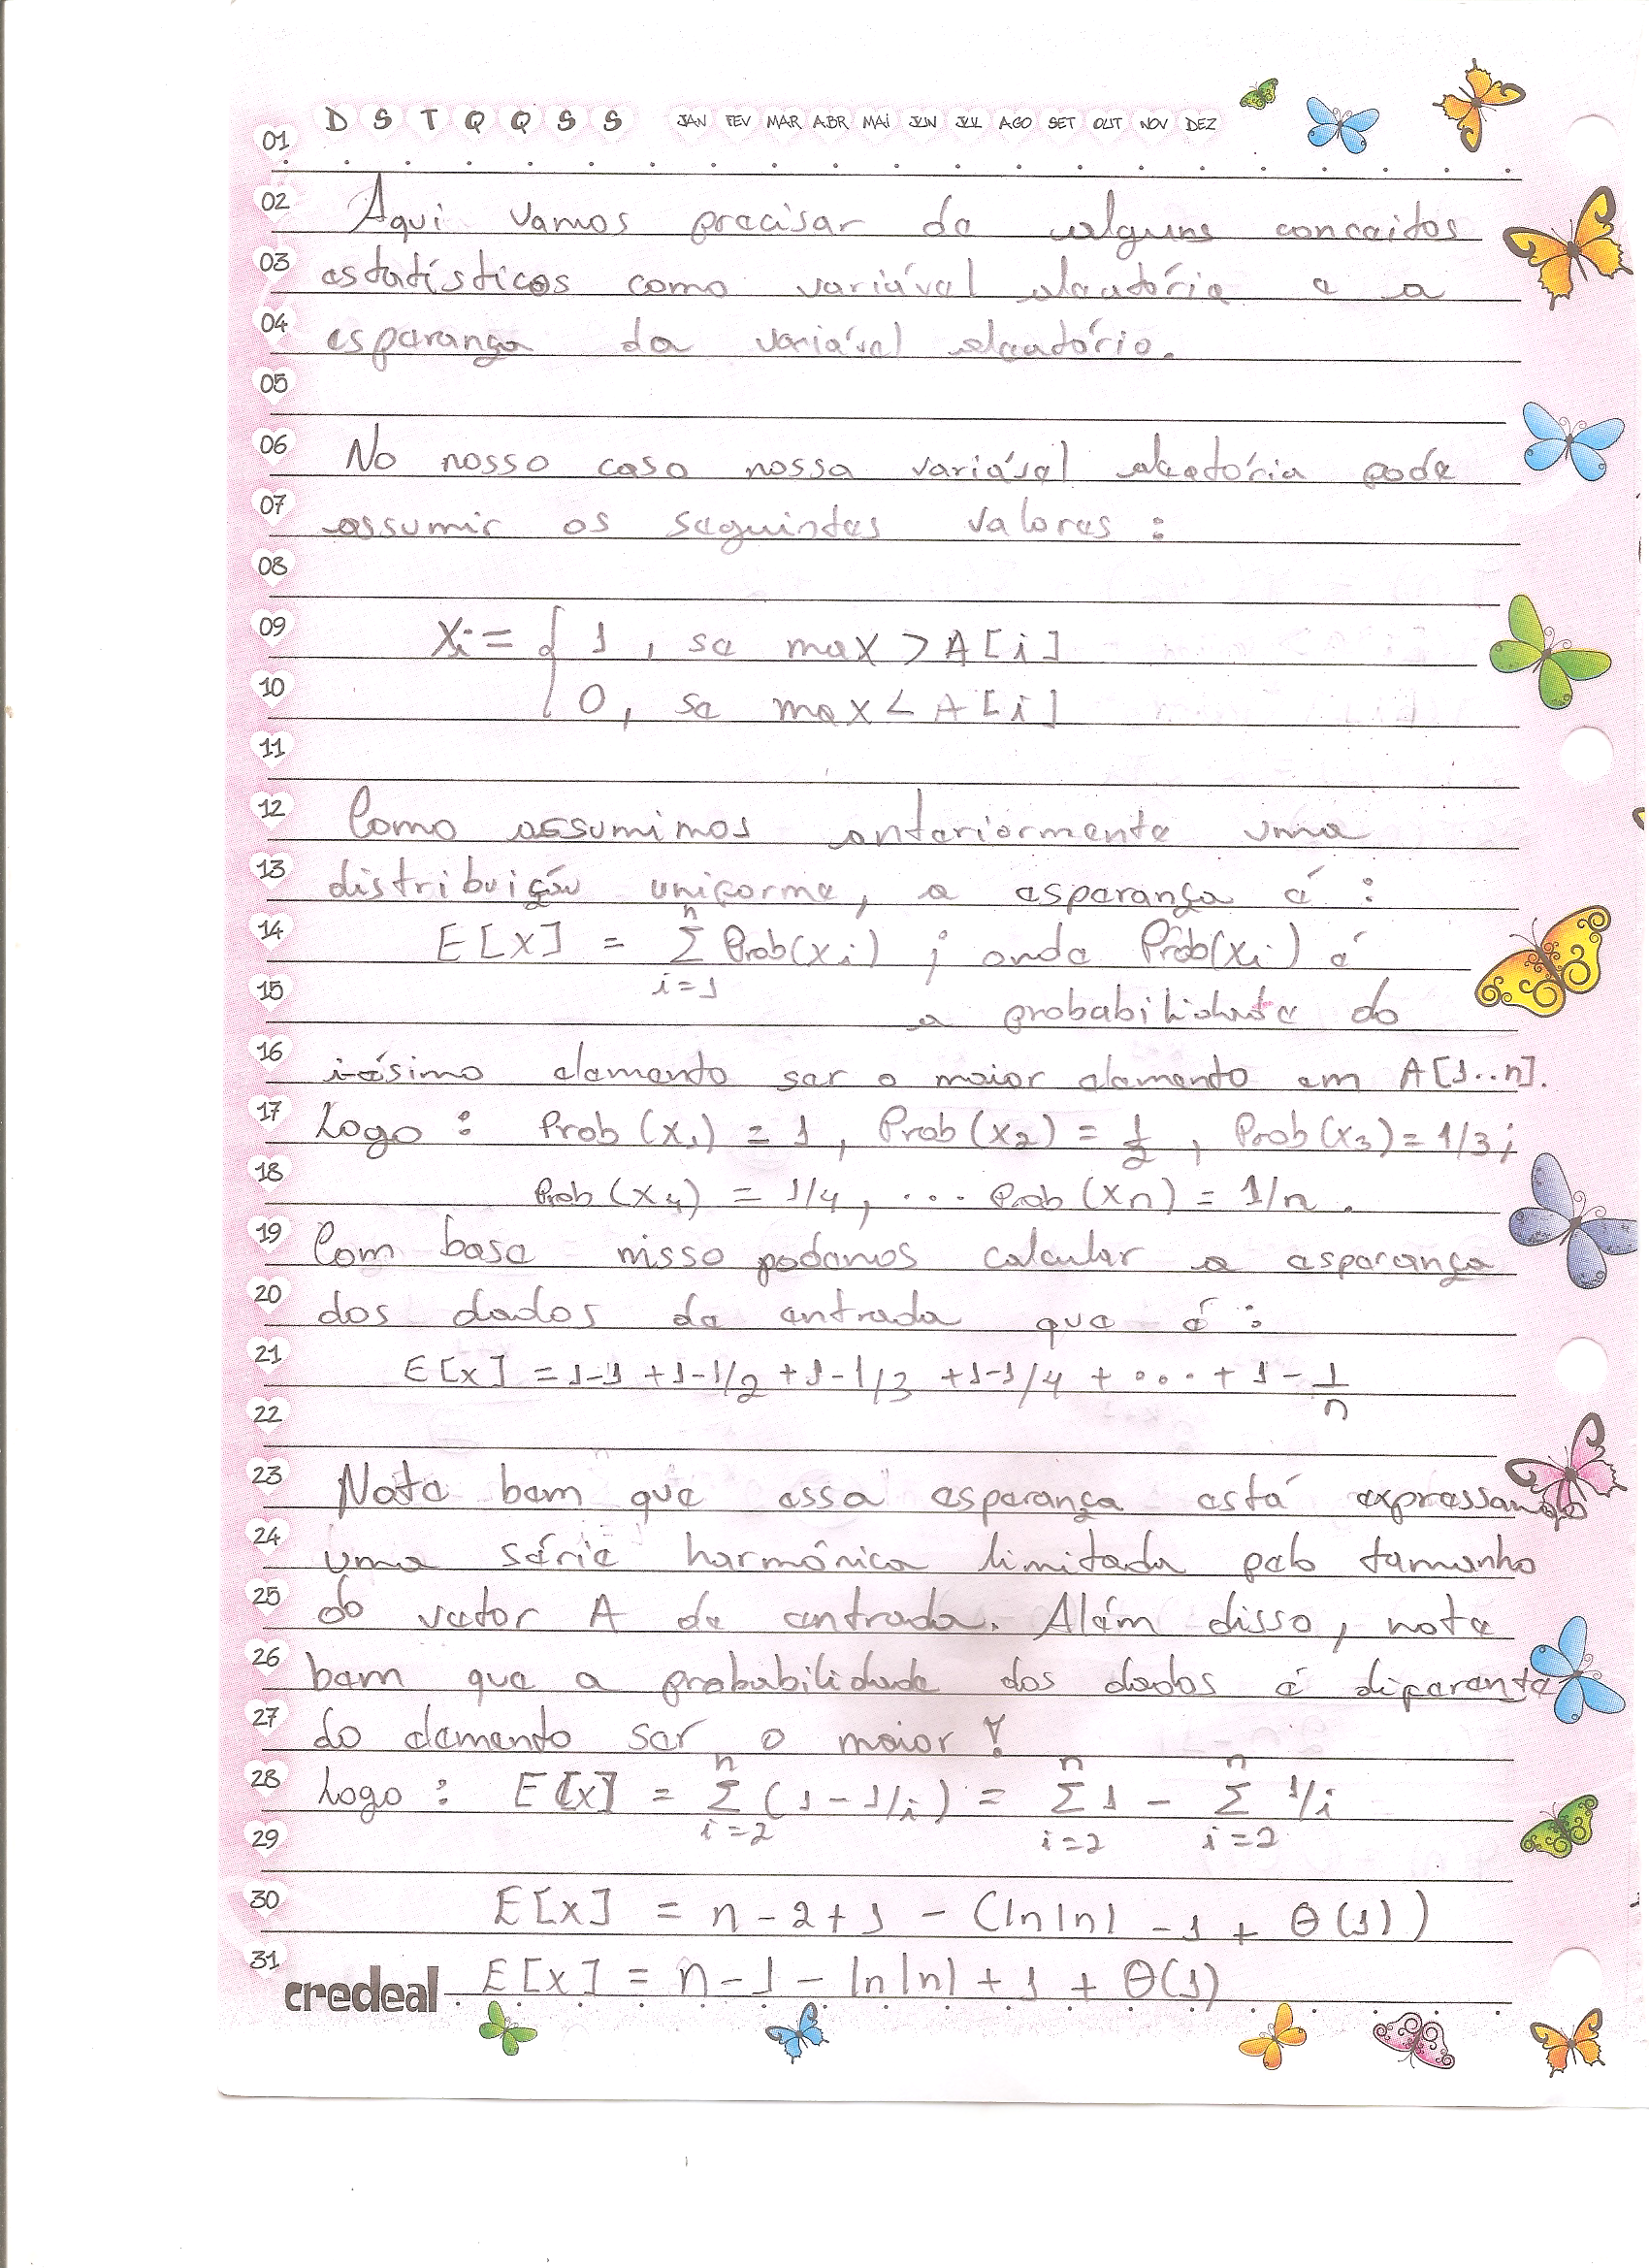 D S T Q Q S S JAN FEV MAR ABR MAI JUN JUL AGO SET OUT NOV DEZ
01
02 Aqui vamos precisar de alguns conceitos
03 estatísticos como variável aleatória e a
04 esperança da variável aleatório.
05
06 No nosso caso nossa variável aleatória pode
07 assumir os seguintes valores :
08
09 Xi = { 1 , se max > A[i]
10 0, se max < A[i]
11
12 Como assumimos anteriormente uma
13 distribuição uniforme, a esperança é :
14 E[X] = n Σ i=1 Prob(xi) ; onde Prob(xi) é
15 a probabilidade do
16 i-ésimo elemento ser o maior elemento em A[1..n].
17 Logo : Prob(x1) = 1, Prob(x2) = 1/2, Prob(x3) = 1/3;
18 Prob(x4) = 1/4, ... Prob(xn) = 1/n.
19 Com base nisso podemos calcular a esperança
20 dos dados de entrada que é :
21 E[x] = 1-1 + 1-1/2 + 1-1/3 + 1-1/4 + ... + 1 - 1/n
22
23 Note bem que essa esperança está expressando
24 uma série harmônica limitada pelo tamanho
25 do vetor A de entrada. Além disso, note
26 bem que a probabilidade dos dados é diferente
27 do elemento ser o maior!
28 Logo : E[x] = n Σ i=2 (1 - 1/i) = n Σ i=2 1 - n Σ i=2 1/i
29
30 E[x] = n - 2 + 1 - (ln|n| - 1 + θ(1))
31 E[x] = n - 1 - ln|n| + 1 + θ(1)
credeal